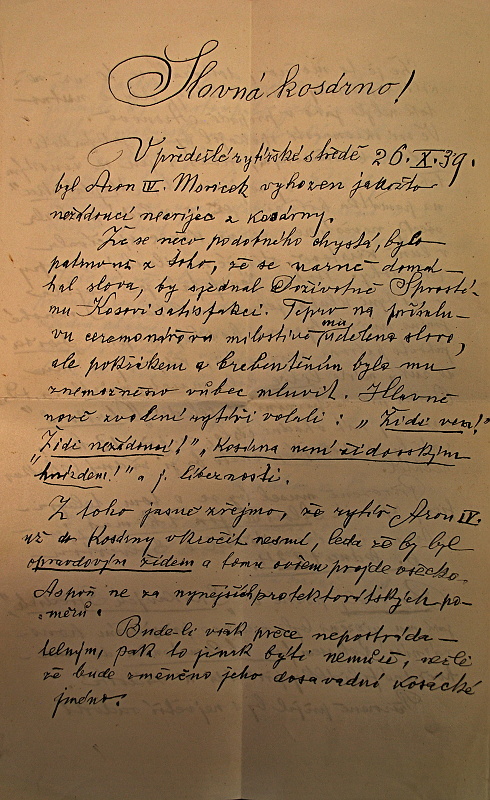 Slavná kosárno!
V předešlé rytířské středě 26. X. 39.
byl Aron IV. Moricek vyhozen jakožto
nežádoucí nearijec z kosárny.
Že se něco podobného chystá, bylo
patrno z toho, že se marně domá-
hal slova, by sjednal Doživotně Sprosté-
mu Kosovi satisfakci. Teprv na přímlu-
vu ceremonářovu milostivě mu uděleno slovo,
ale pokřikem a brebentěním bylo mu
znemožněno vůbec mluvit. Hlavně
nově zvolení rytíři volali: „Židi ven!"
„Židi nežádoucí!" „Kosárna není židovským
hnízdem!" a j. libernosti.
Z toho jasně zřejmo, že rytíř Aron IV.
už do Kosárny vkročit nesmí, leda že by byl
opravdovým židem a tomu ovšem projde všecko.
Aspoň ne za nynějších protektorátských po-
měrů.
Bude-li však přece nepostráda-
telným, pak to jinak býti nemůže, nežli
že bude změněno jeho dosavadní kosácké
jméno.